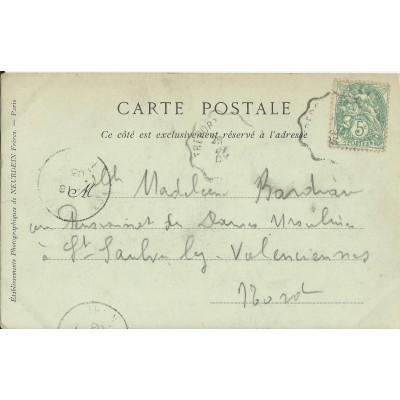 CARTE POSTALE
Ce côté est exclusivement réservé à l'adresse
Établissements Photographiques de NEURDEIN Frères. — Paris
5c
Madeleine
au Pensionnat des Dames Ursulines
à St Saulve lez-Valenciennes
Nord